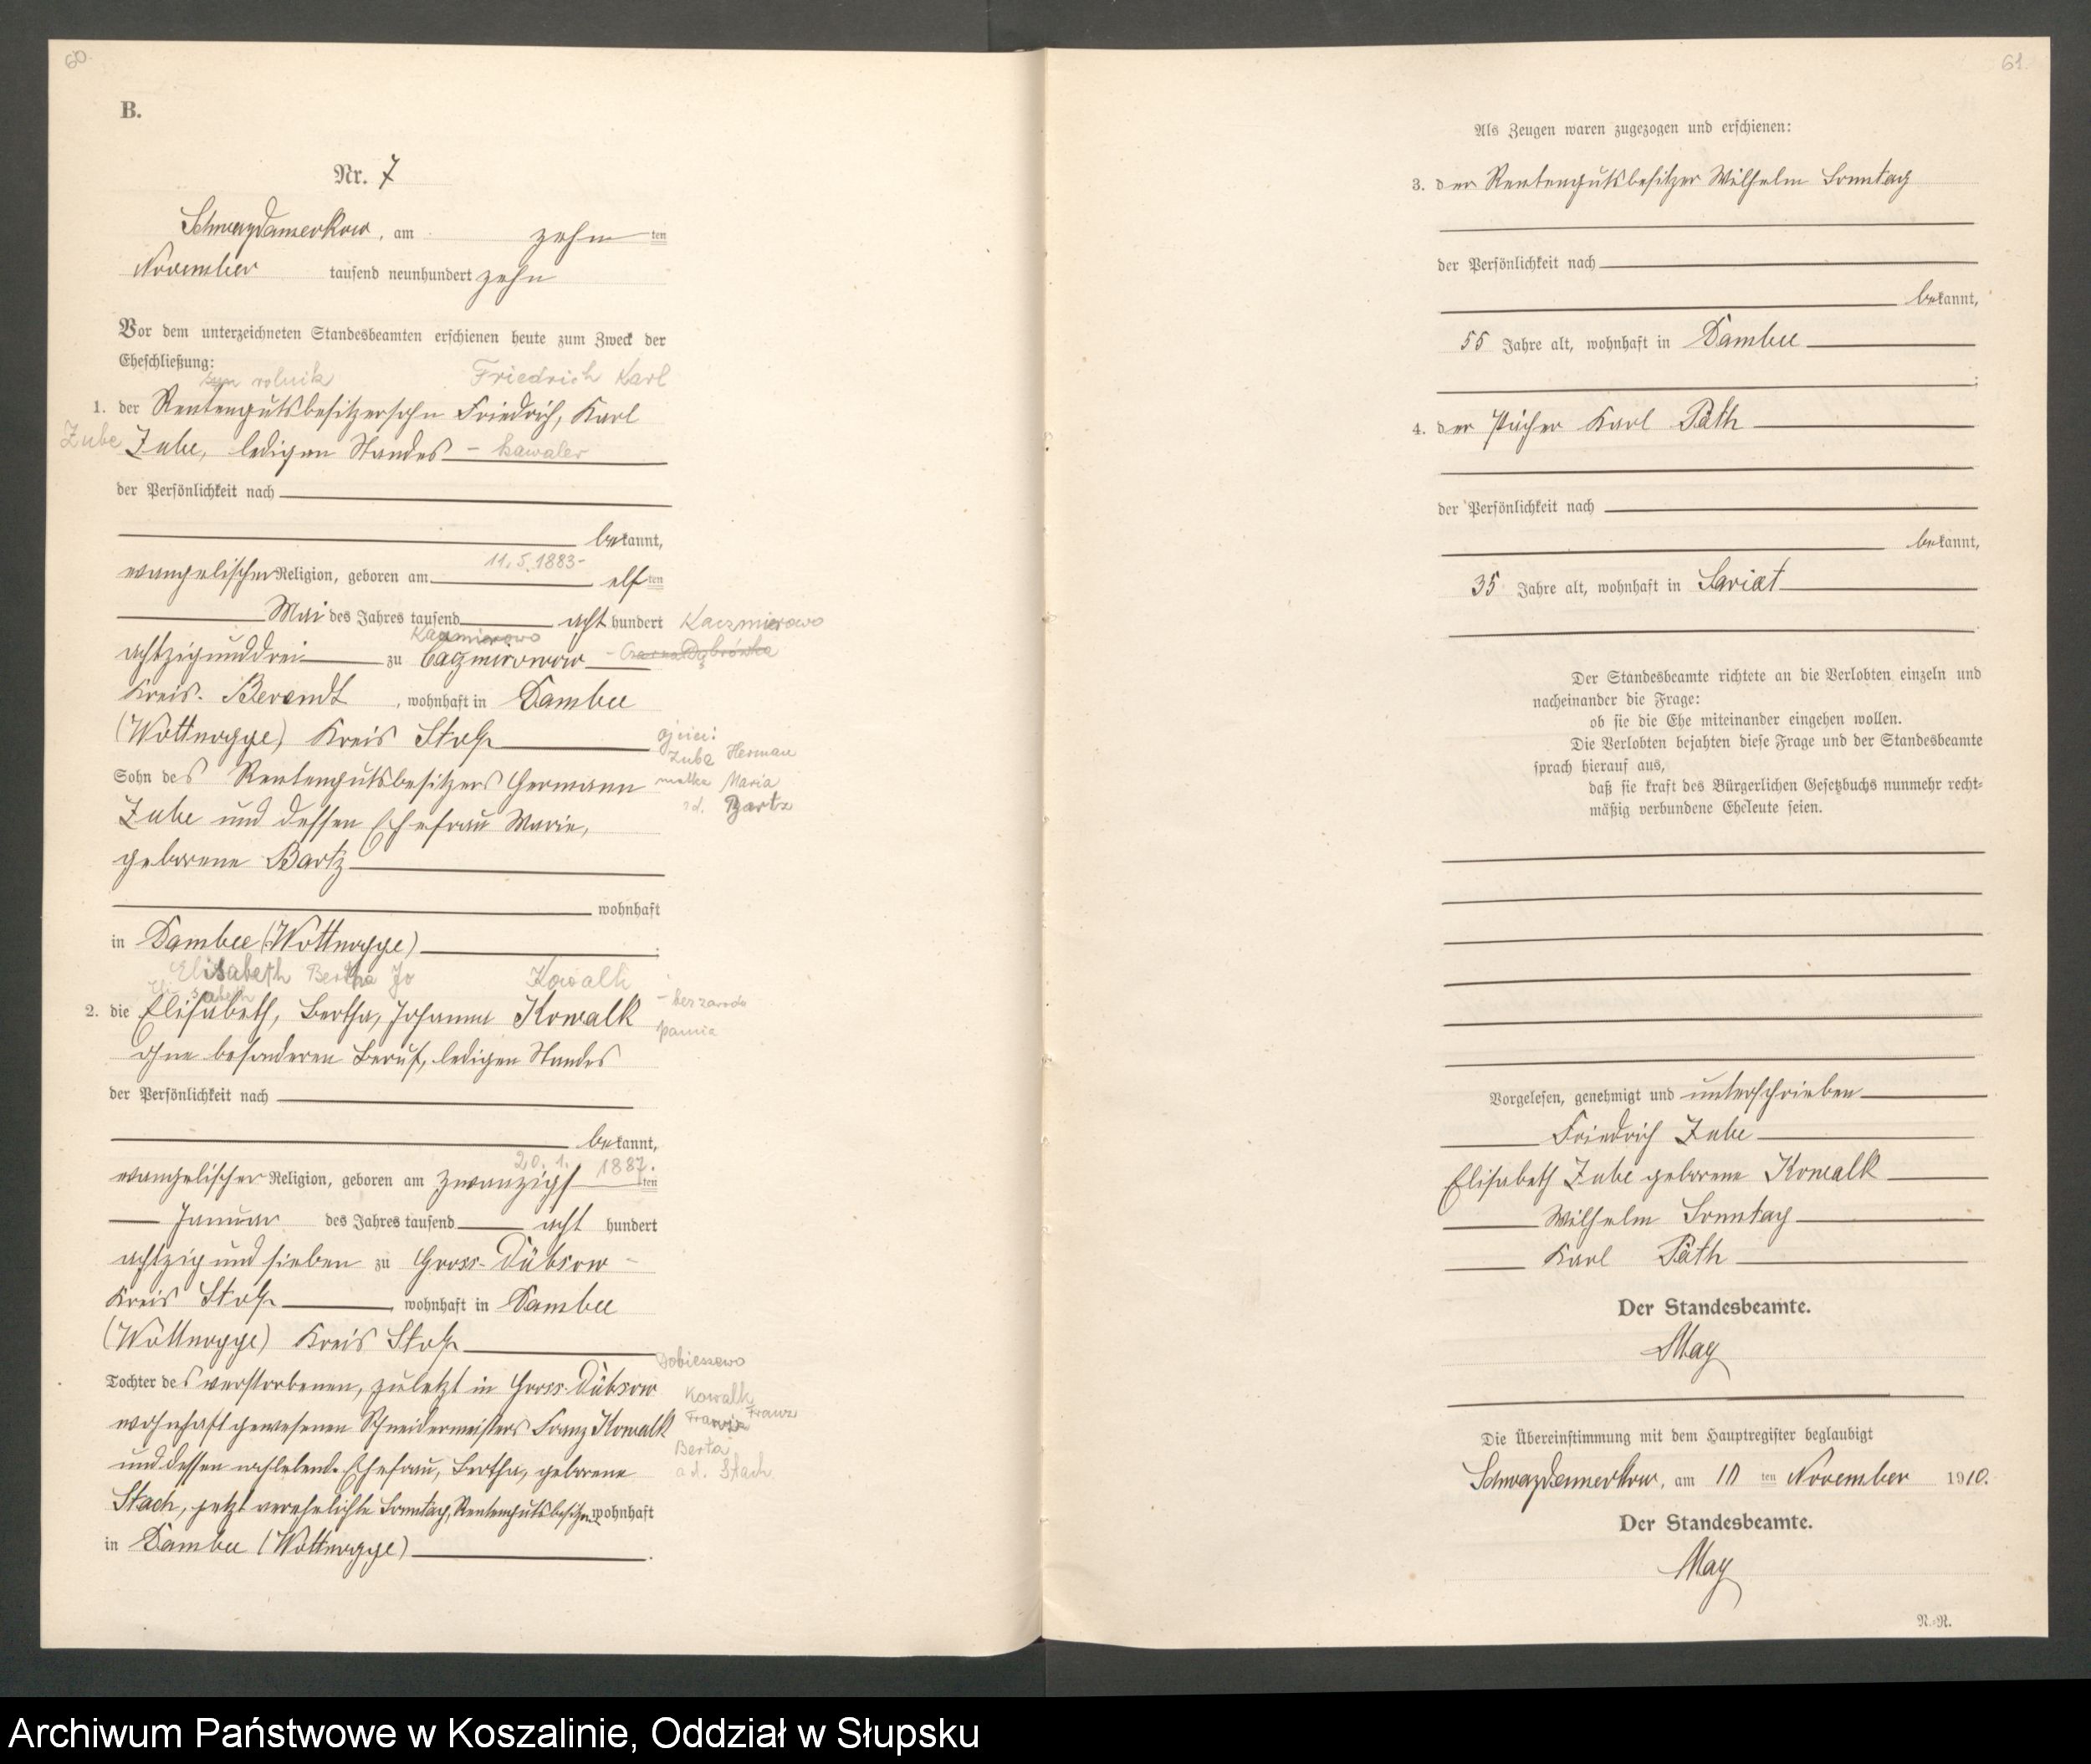 60.
B.
Nr. 7
Schwarzdamerkow, am zehn ten
November tausend neunhundert zehn
Vor dem unterzeichneten Standesbeamten erschienen heute zum Zweck der
Eheschließung:
syn rolnik Friedrich Karl
1. der Rentengutsbesitzersohn Friedrich, Karl
Zube Zube, ledigen Standes - kawaler
der Persönlichkeit nach
bekannt,
11.5.1883-
evangelischer Religion, geboren am elf ten
Mai des Jahres tausend acht hundert Kaczmierowo
Kaczmierowo
achtzigunddrei zu Caczmirowow - Czarna Dąbrówka
Kreis Berendt, wohnhaft in Dambee
(Wottnogge) Kreis Stolp ojciec:
Zube Herman
Sohn des Rentengutsbesitzers Hermann matka Maria
Zube und dessen Ehefrau Marie, zd. Bartz
geborene Bartz
wohnhaft
in Dambee (Wottnogge).
Elisabeth Bertha Jo Kowalk
2. die Elisabeth, Bertha, Johanna Kowalk - bez zawodo
ohne besonderen Beruf, ledigen Standes panna
der Persönlichkeit nach
bekannt,
20. 1. 1887.
evangelischer Religion, geboren am zwanzigs ten
Januar des Jahres tausend acht hundert
achtzig und sieben zu Gross-Dübsow -
Kreis Stolp, wohnhaft in Dambee
(Wottnogge) Kreis Stolp
Dobieszewo
Tochter des verstorbenen, zuletzt in Gross Dübsow
Kowalk
wohnhaft gewesenen Schneidermeisters Franz Kowalk Franz
Berta
und dessen nachlebend. Ehefrau, Bertha, geborene od. Stach
Stach, jetzt verehelichte Sonntag, Rentengutsbesitzer wohnhaft
in Dambee (Wottnogge).
61.
Als Zeugen waren zugezogen und erschienen:
3. der Rentengutsbesitzer Wilhelm Sonntag
der Persönlichkeit nach
bekannt,
55 Jahre alt, wohnhaft in Dambee
;
4. der Karl Päth
der Persönlichkeit nach
bekannt,
35 Jahre alt, wohnhaft in
Der Standesbeamte richtete an die Verlobten einzeln und
nacheinander die Frage:
ob sie die Ehe miteinander eingehen wollen.
Die Verlobten bejahten diese Frage und der Standesbeamte
sprach hierauf aus,
daß sie kraft des Bürgerlichen Gesetzbuchs nunmehr recht-
mäßig verbundene Eheleute seien.
Vorgelesen, genehmigt und unterschrieben
Friedrich Zube
Elisabeth Zube geborene Kowalk
Wilhelm Sonntag
Karl Päth
Der Standesbeamte.
May
Die Übereinstimmung mit dem Hauptregister beglaubigt
Schwarzdamerkow, am 10 ten November 1910.
Der Standesbeamte.
May
N.-R.
Archiwum Państwowe w Koszalinie, Oddział w Słupsku